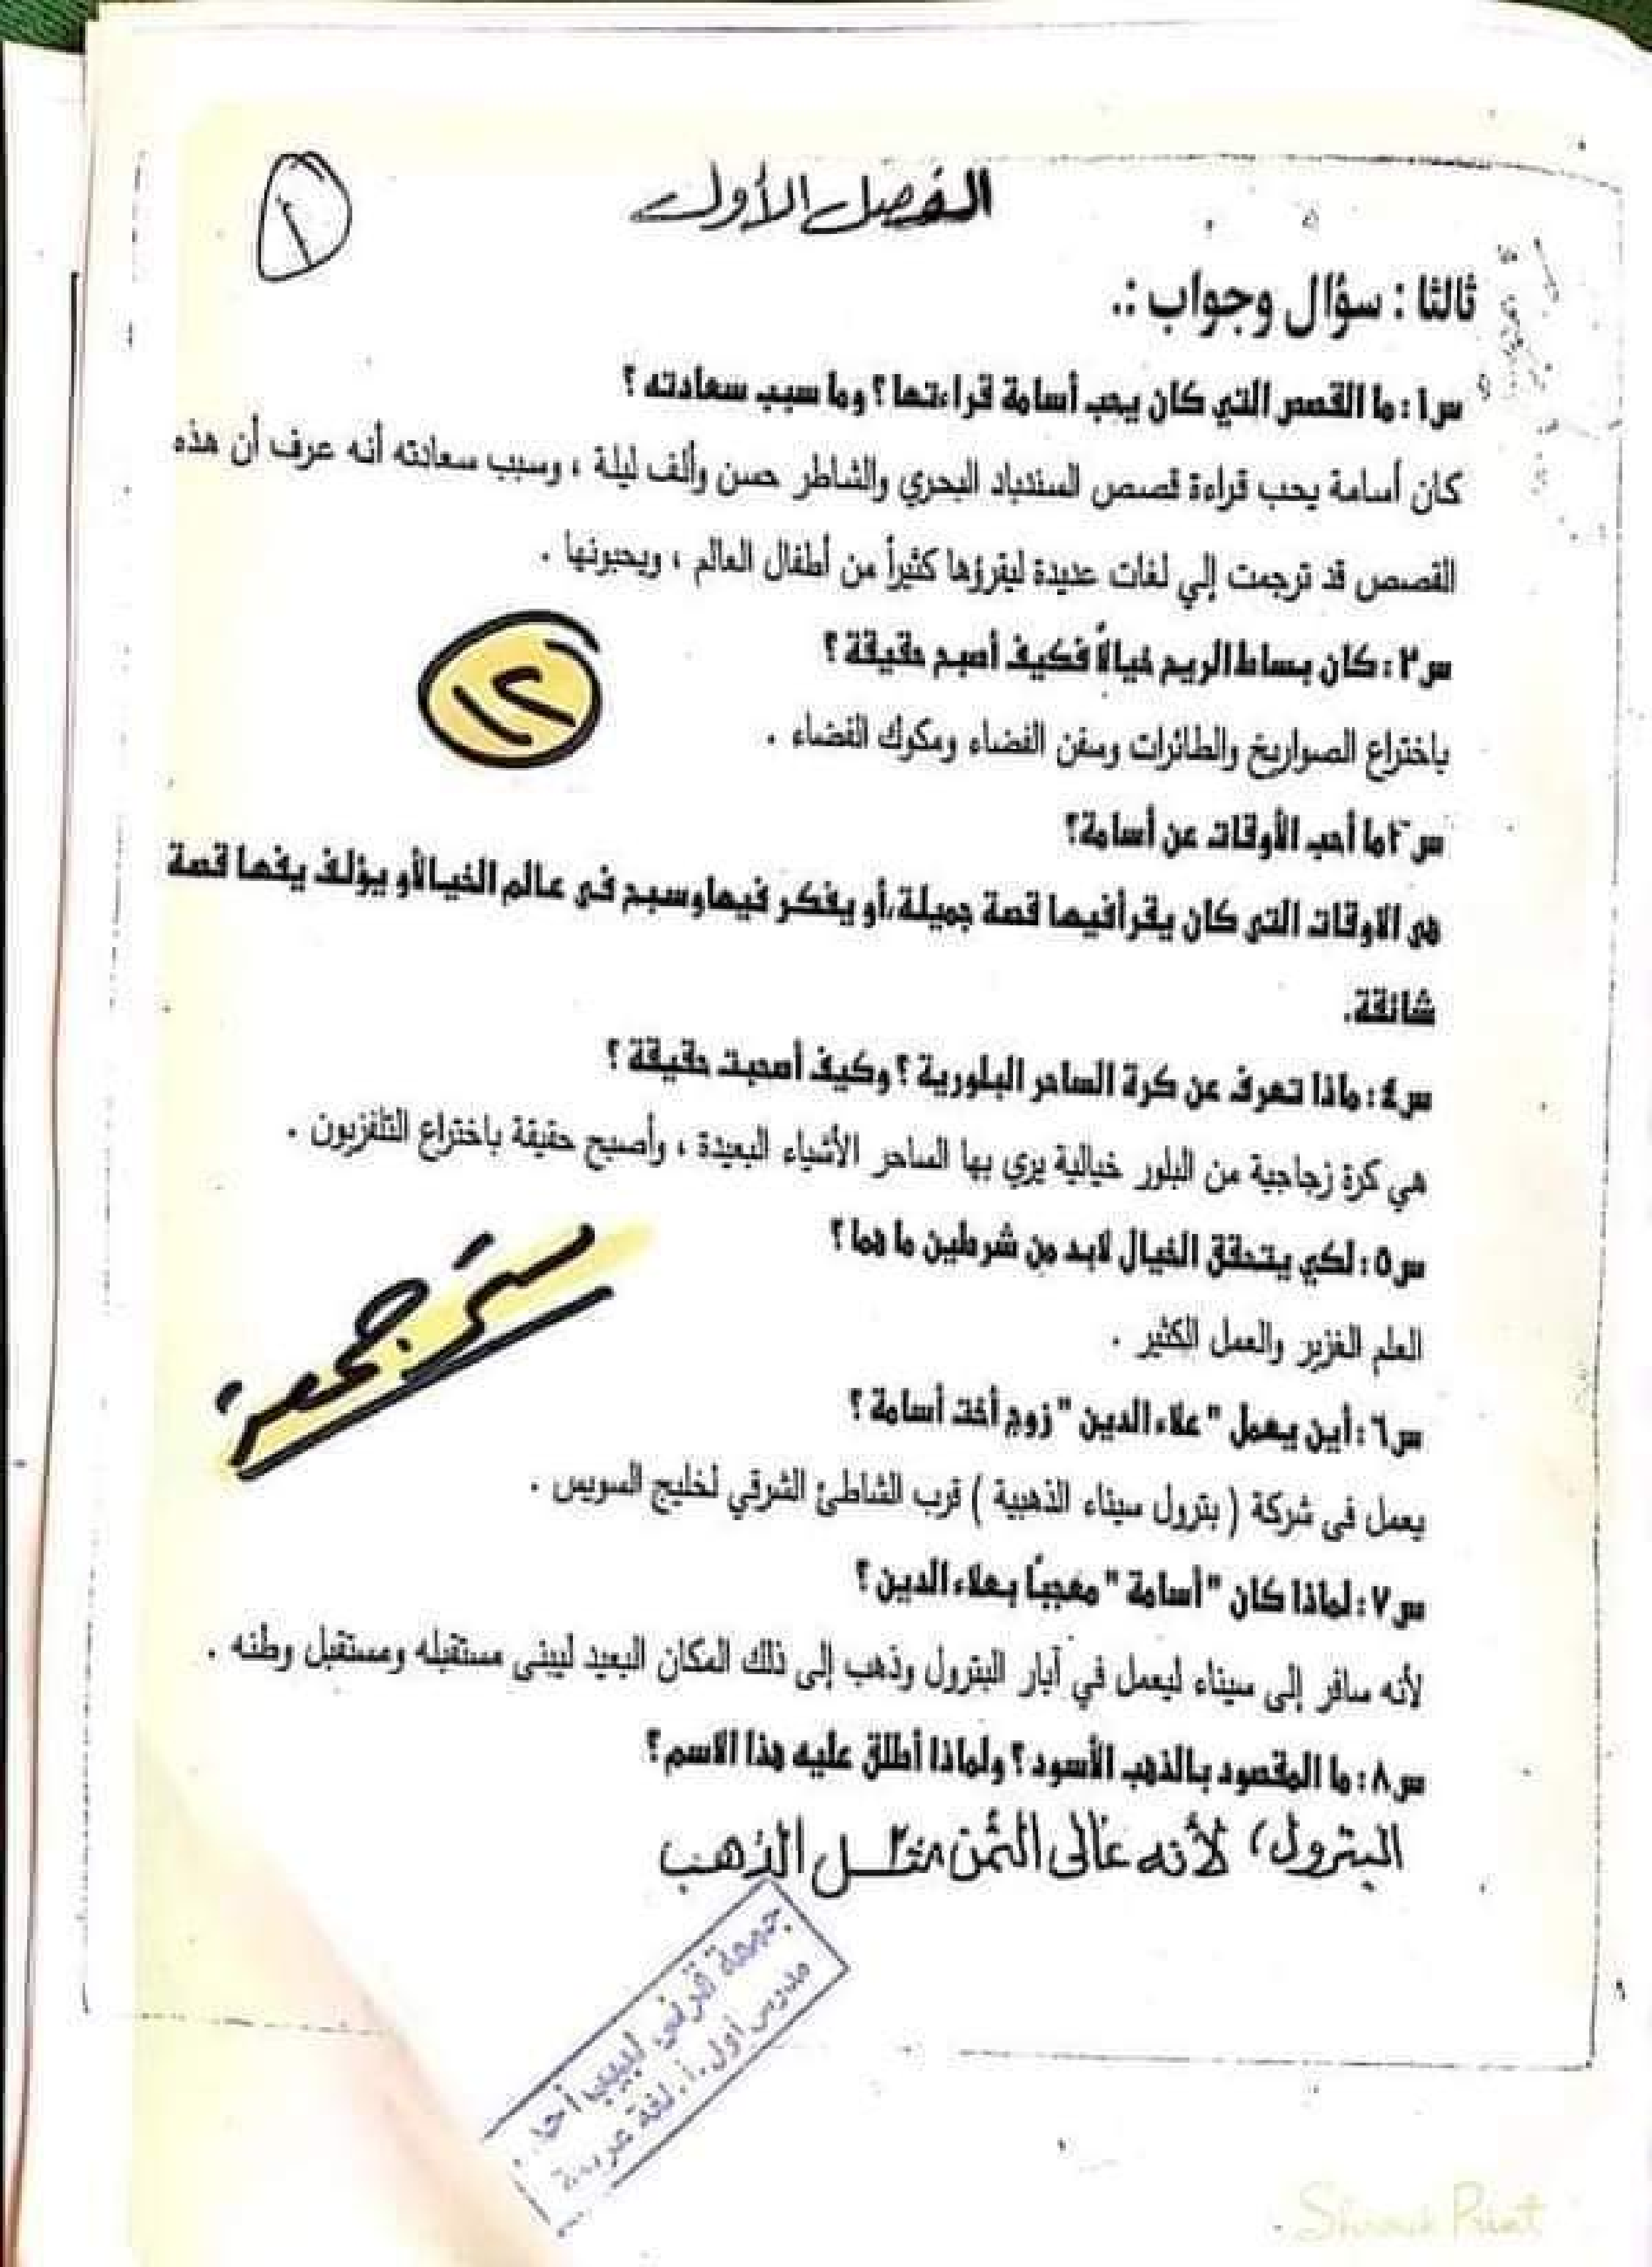 الفصل الأول
١
ثالثا : سؤال وجواب :.
س١ : ما القصص التي كان يحب أسامة قراءتها ؟ وما سبب سعادته ؟
كان أسامة يحب قراءة قصص السندباد البحري والشاطر حسن وألف ليلة ، وسبب سعادته أنه عرف أن هذه
القصص قد ترجمت إلي لغات عديدة ليقرؤها كثيراً من أطفال العالم ، ويحبونها .
س٢ : كان بساط الريح خيالاً فكيف أصبح حقيقة ؟
١٢
باختراع الصواريخ والطائرات وسفن الفضاء ومكوك الفضاء .
س٣ما أحب الأوقات عن أسامة؟
هى الاوقات التى كان يقرأفيها قصة جميلة،أو يفكر فيهاوسبح فى عالم الخيالأو يؤلف يفها قصة
شائقة.
س٤ : ماذا تعرف عن كرة الساحر البلورية ؟ وكيف أصحبت حقيقة ؟
هي كرة زجاجية من البلور خيالية يري بها الساحر الأشياء البعيدة ، وأصبح حقيقة باختراع التلفزيون .
س٥ : لكي يتحقق الخيال لابد من شرطين ما هما ؟
العلم الغزير والعمل الكثير .
س٦ : أين يعمل " علاء الدين " زوج أخت أسامة ؟
يعمل فى شركة ( بترول سيناء الذهبية ) قرب الشاطئ الشرقي لخليج السويس .
س٧ : لماذا كان " أسامة " معجباً بعلاء الدين ؟
لأنه سافر إلى سيناء ليعمل في آبار البترول وذهب إلى ذلك المكان البعيد ليبنى مستقبله ومستقبل وطنه .
س٨ : ما المقصود بالذهب الأسود ؟ ولماذا أطلق عليه هذا الاسم ؟
البترول ، لأنه غالى الثمن مثل الذهب
جمعة قرنى لبيب أحمد
مدرس أول أ. لغة عربية
Print